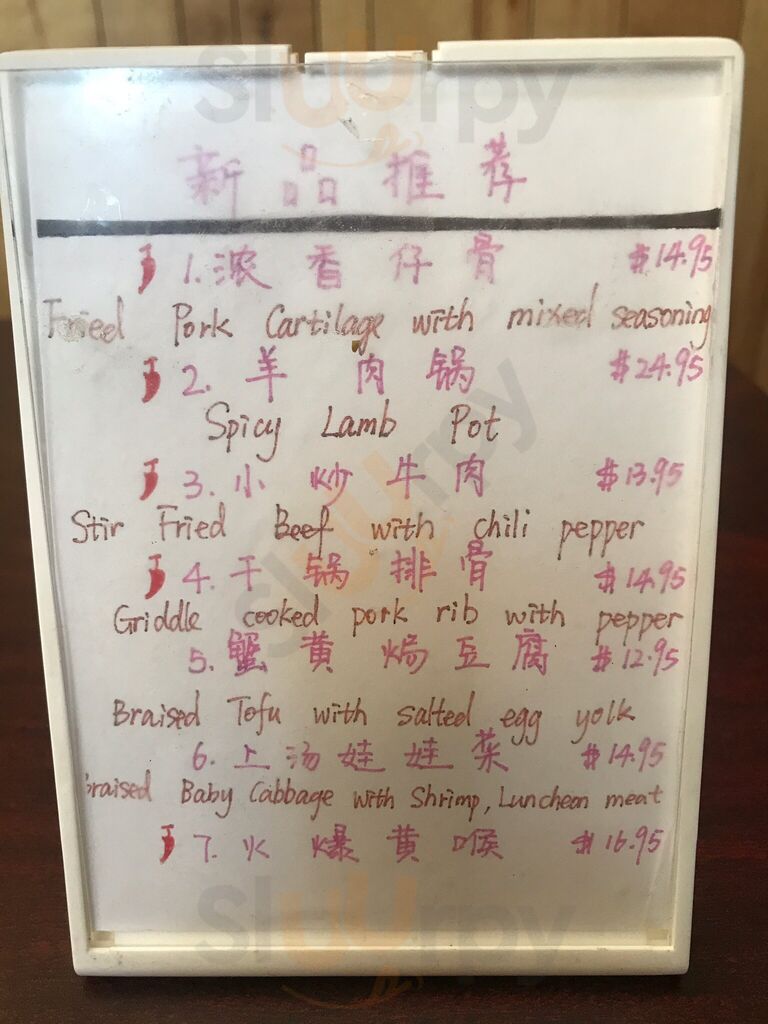 Sluurpy
新品推荐
1. 浓香仔骨 $14.95
Fried Pork Cartilage with mixed seasoning
2. 羊肉锅 $24.95
Spicy Lamb Pot
3. 小炒牛肉 $13.95
Stir Fried Beef with chili pepper
Sluurpy
4. 干锅排骨 $14.95
Griddle cooked pork rib with pepper
5. 蟹黄焗豆腐 $12.95
Braised Tofu with salted egg yolk
6. 上汤娃娃菜 $14.95
braised Baby Cabbage with Shrimp, Luncheon meat
7. 火爆黄喉 $16.95
Sluurpy